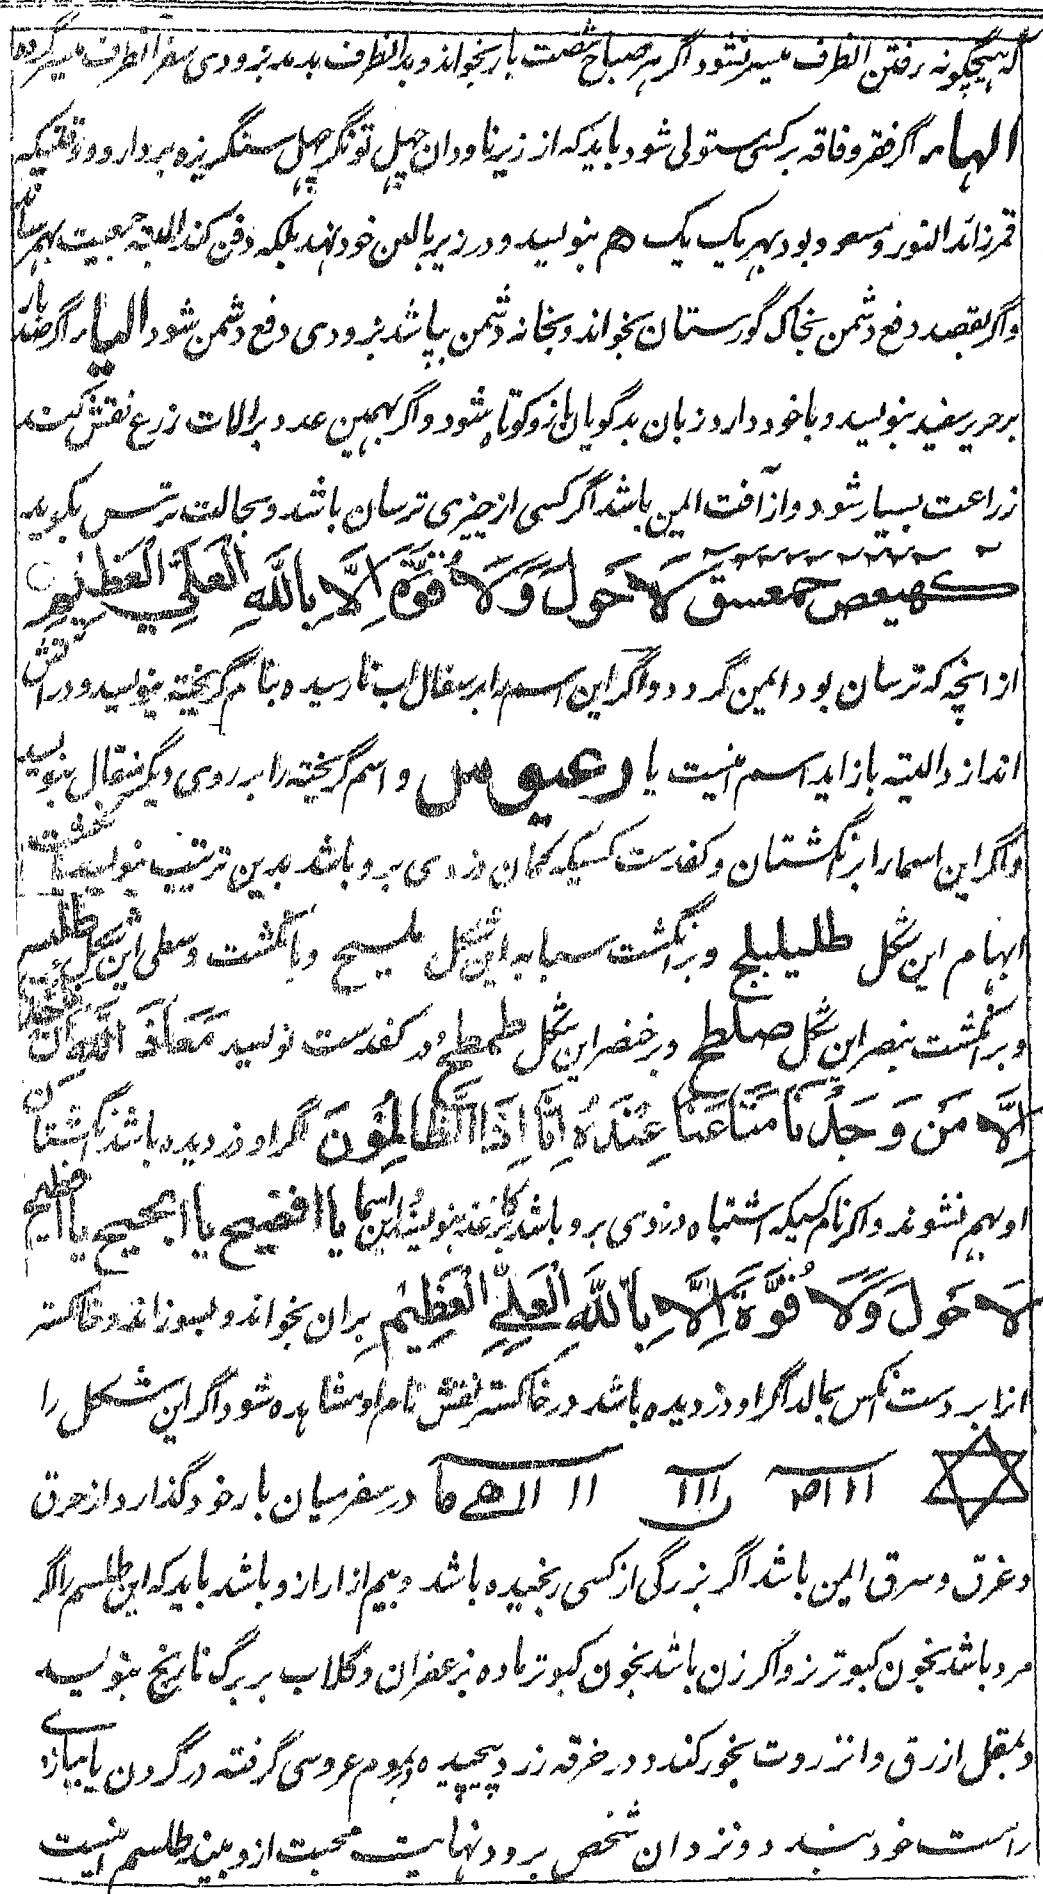 که هیچگونه رفتن الطرف میسر نشود اگر هر صباح شصت بار بخواند و بدالطرف بدمد بزودی سفر انطرف میسر گردد
الهاء اگر فقر و فاقه بر کسی مستولی شود باید که از زیر ناودان چهل تونگر چهل سنگریزه بردارد و وقتیکه
قمر زائد النور و مسعود بود بهر یک یک هم بنویسد و در زیر بالین خود نهد بلکه دفن کند البته جمعیت بهم رساند
واگر بقصد دفع دشمن بخاک گورستان بخواند و بخانه دشمن بپاشد بزودی دفع دشمن شود الیاء اگر صد بار
بر حریر سفید بنویسد و با خود دارد زبان بدگویان ازو کوتاه شود و اگر بهمین عدد بر الات زرع نقش کنند
زراعت بسیار شود و از آفت ایمن باشد اگر کسی از چیزی ترسان باشد و بحالت ترس بگوید
كهيعص حمعسق لَا حَوْلَ وَلَا قُوَّةَ اِلَّا بِاللّٰهِ الْعَلِيِّ الْعَظِيْمِ
از انچه که ترسان بود ایمن گردد و اگر این اسم را بر سفال اب نارسیده بنام گریخته بنویسد و در اتش
اندازد البته باز اید اسم اینست یا رعیوس و اسم گریخته را بر روی دیگر سفال بنویسد
و اگر این اسما را بر انگشتان و کفدست کسیکه گمان دزدی برو باشد بدین ترتیب بنویسد
ابهام این شکل طلیلیلج و بر انگشت سبابه این شکل ملسیح و بانگشت وسطی این شکل طلسم
و بر انگشت بنصر این شکل صلطح و بر خنصر این شکل طمطح و در کفدست نویسد مَعَاذَ اللّٰهِ اَنْ نَّأْخُذَ
اِلَّا مَنْ وَجَدْنَا مَتَاعَنَا عِنْدَهٗ اِنَّا اِذًا الظَّالِمُوْنَ اگر او دزدیده باشد انگشتان
او بهم نشوند و اگر نام کسیکه اشتباه دزدی برو باشد بکاغذ بنویسد این اسما یا افضیح یا ابحیح یا
لَا حَوْلَ وَلَا قُوَّةَ اِلَّا بِاللّٰهِ الْعَلِيِّ الْعَظِيْمِ بران بخواند و بسوزاند و خاکستر
انرا بر دست انکس بمالد اگر او دزدیده باشد در خاکستر نقش نام او مشاهده شود اگر این شکل را
در سفر میان بار خود گذارد از حرق
و غرق و سرق ایمن باشد اگر بزرگی از کسی رنجیده باشد و بیم ازار ازو باشد باید که این طلسم را اگر
مرد باشد بخون کبوتر نر و اگر زن باشد بخون کبوتر ماده بزعفران و گلاب بر برگ نارنج بنویسد
و بمقل ازرق و انزروت بخور کند و در خرقه زرد پیچیده و بموم عروسی گرفته در گردن یا ببازوی
راست خود بندد و نزد ان شخص برود نهایت محبت ازو بیند طلسم اینست